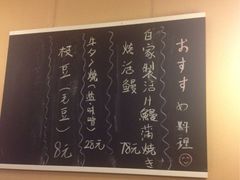 おすすめ料理
自家製活け鰻蒲焼き
焼活鰻 78元
牛タン焼(盐叶岩) 28元
枝豆(毛豆) 8元